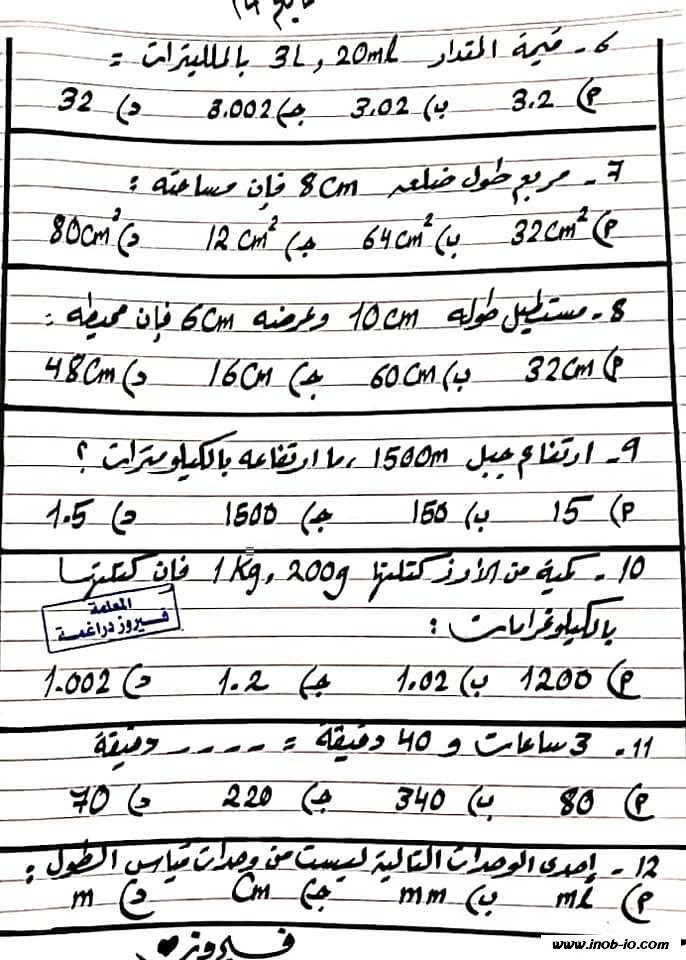 6- قيمة المقدار 3L , 20ml بالمليترات =
أ) 3.2 ب) 3.02 جـ) 3.002 د) 32
7- مربع طول ضلعه 8cm فإن مساحته :
أ) 32cm² ب) 64cm² جـ) 12cm² د) 80cm²
8- مستطيل طوله 10cm وعرضه 6cm فإن محيطه :
أ) 32cm ب) 60cm جـ) 16cm د) 48cm
9- ارتفاع جبل 1500m ,ما ارتفاعه بالكيلومترات ؟
أ) 15 ب) 150 جـ) 1500 د) 1.5
10- كمية من الأرز كتلتها 1Kg , 200g فإن كتلتها
بالكيلوغرامات :
المعلمة
فيروز دراغمة
أ) 1200 ب) 1.02 جـ) 1.2 د) 1.002
11- 3 ساعات و 40 دقيقة = ----- دقيقة
أ) 80 ب) 340 جـ) 220 د) 70
12- إحدى الوحدات التالية ليست من وحدات قياس الطول :
أ) ml ب) mm جـ) cm د) m
فيروز ♥
www.inob-io.com